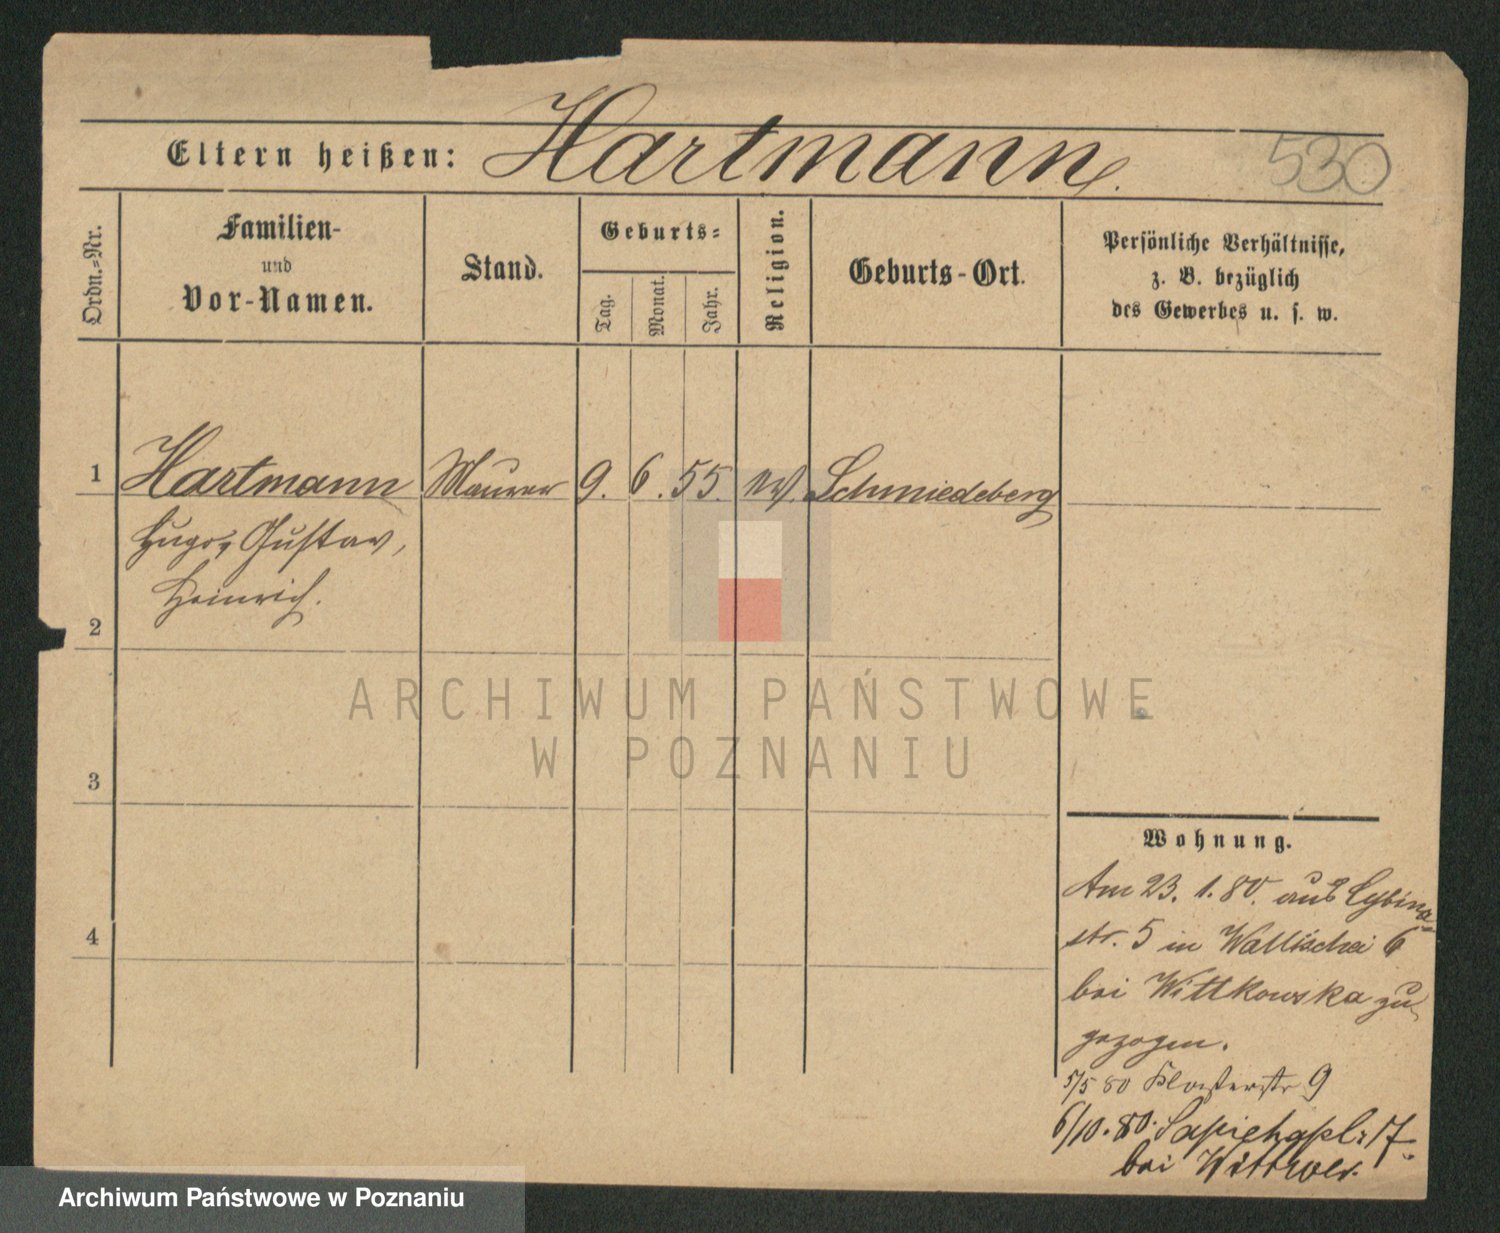 Eltern heißen: Hartmann.
530
Ordn.=Nr.
Familien-
und
Vor-Namen.
Stand.
Geburts=
Tag.
Monat.
Jahr.
Religion.
Geburts-Ort.
Persönliche Verhältnisse,
z. B. bezüglich
des Gewerbes u. s. w.
1 Hartmann Maurer 9. 6. 55. ev. Schmiedeberg
Hugo, Gustav,
Heinrich.
2
3
4
ARCHIWUM PAŃSTWOWE
W POZNANIU
Wohnung.
Am 23. 1. 80. aus Cybina
str. 5 in Wallischei 6
bei Wittkowska zu
gezogen.
5/5 80 Klosterstr 9
6/10. 80. Sapiehapl. 17
bei
Archiwum Państwowe w Poznaniu